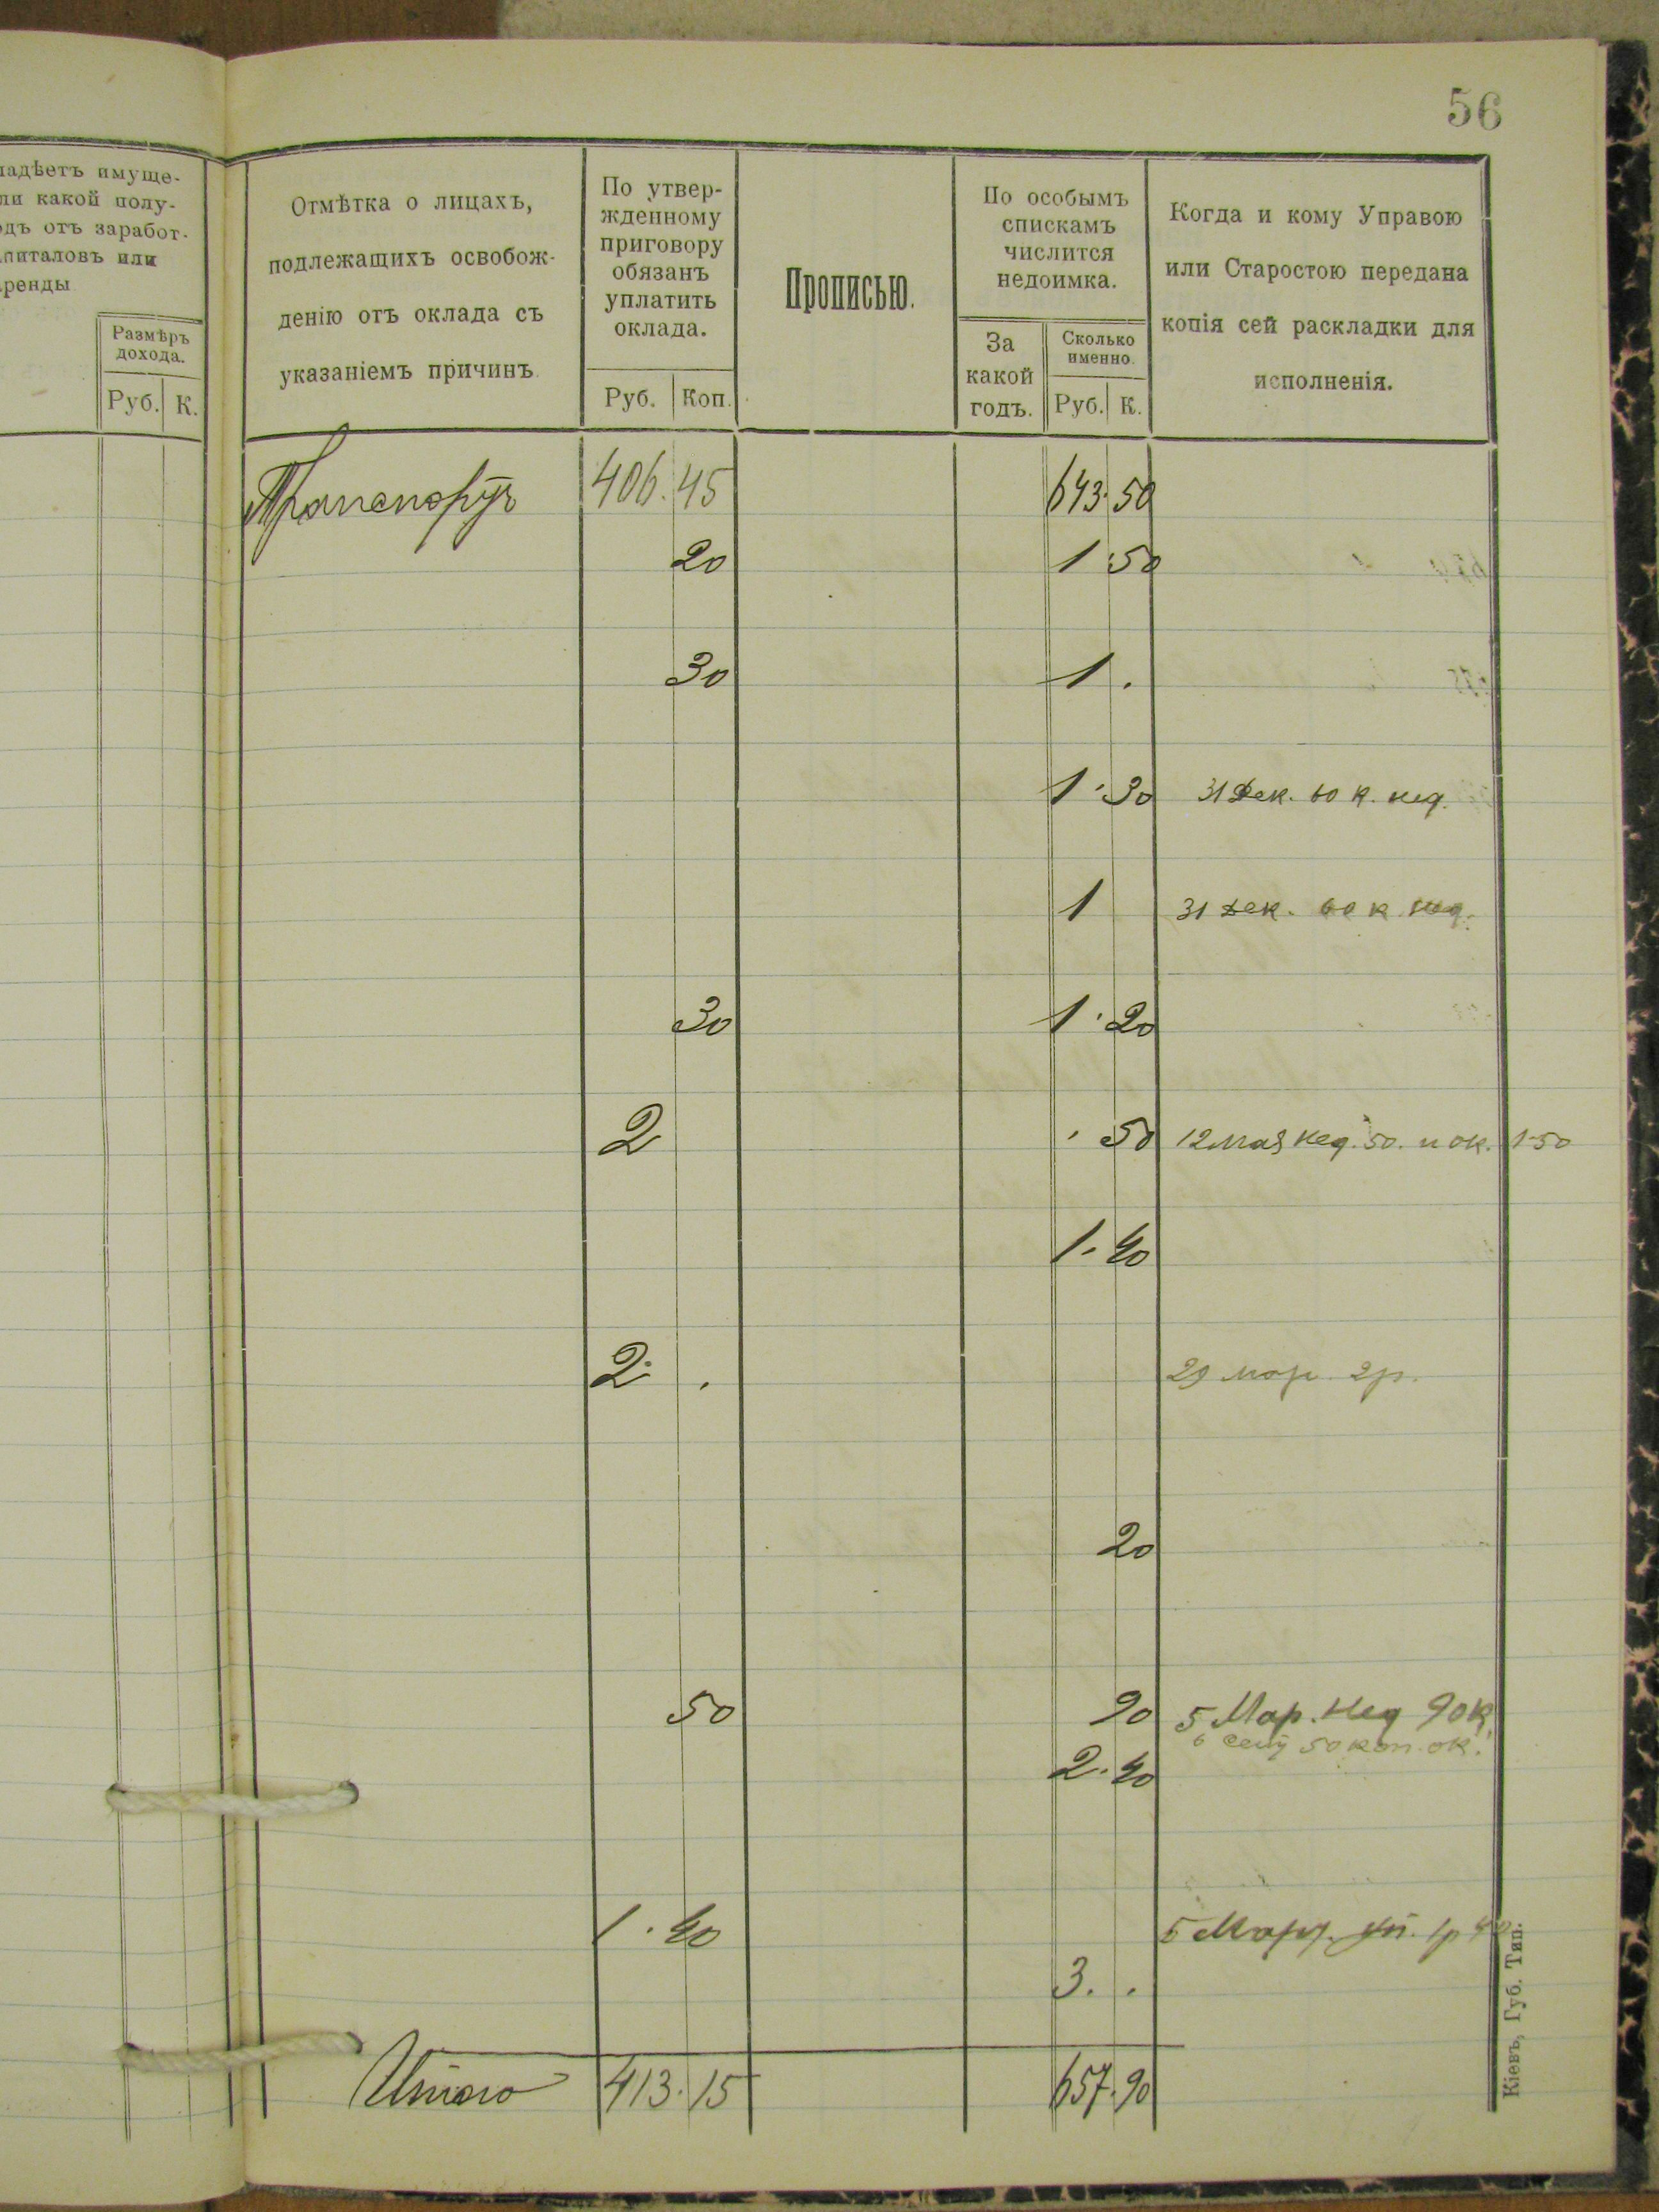 56
ладѣетъ имуще-
ли какой полу-
одъ отъ заработ-
апиталовъ или
ренды
Размѣръ
дохода.
Руб. К.
Отмѣтка о лицахъ,
подлежащихъ освобож-
денію отъ оклада съ
указаніемъ причинъ
По утвер-
жденному
приговору
обязанъ
уплатить
оклада.
Руб. Коп.
Прописью.
По особымъ
спискамъ
числится
недоимка.
За
какой
годъ.
Сколько
именно.
Руб. К.
Когда и кому Управою
или Старостою передана
копія сей раскладки для
исполненія.
Транспортъ 406. 45 643. 50
20 1 50
30 1 .
1. 30 31 Дек. 60 к. нед.
1 31 Дек. 60 к. нед.
30 1. 20
2 . 50 12 мая нед. 50. и ок. 1-50
1. 40
2. . 29 мар. 2р.
20
50 90 5 Мар. Нед 90 к.
6 50 коп. ок.
2. 40
1. 40 5 Март. 1р 40
3. .
Итого 413. 15 657. 90
Кіевъ, Губ. Тип.